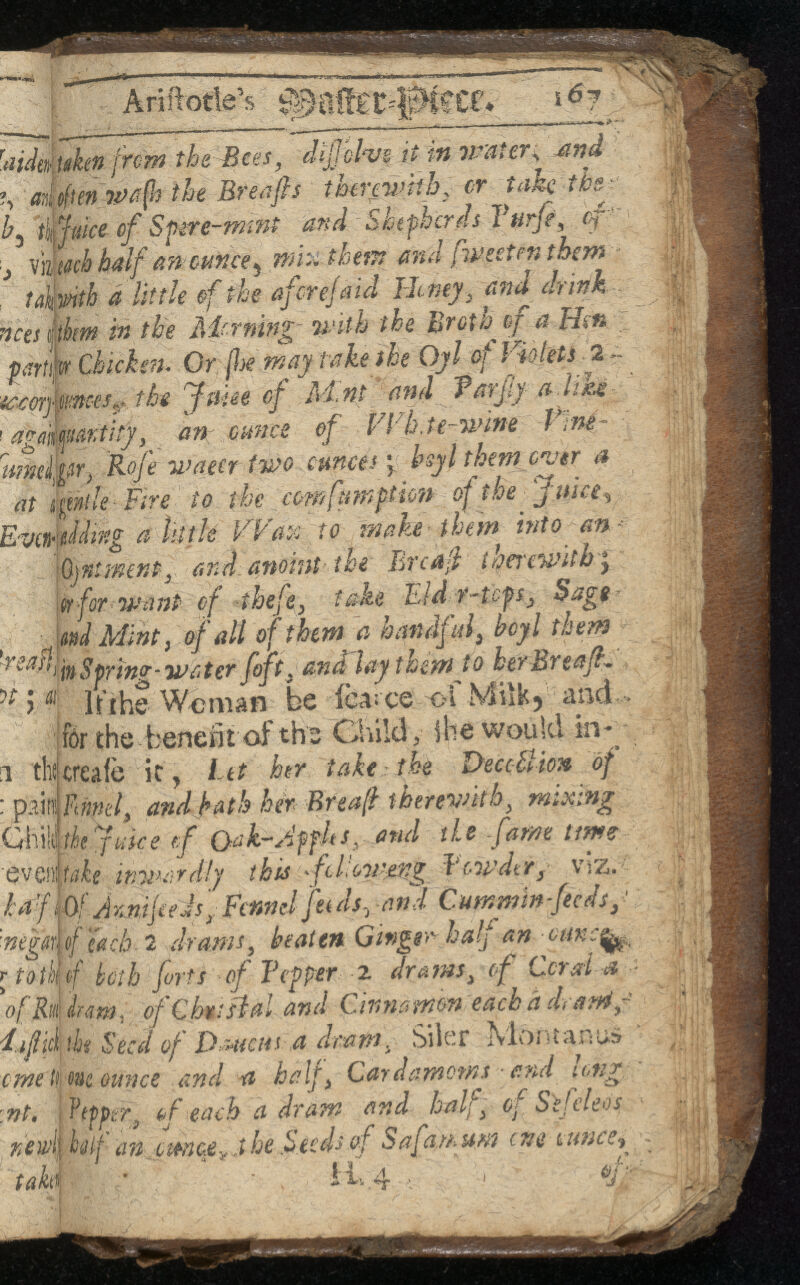 Ariſtotle's Maſter-Piece. 167
taken from the Bees, diſſolve it in water, and
often waſh the Breaſts therewith, or take the
Juice of Spere-mint and Shepherds Purſe, of
each half an ounce, mix them and ſweeten them
with a little of the aforeſaid Honey, and drink
them in the Morning with the Broth of a Hen
or Chicken. Or ſhe may take the Oyl of Violets 2
ounces, the Juiee of Mint and Parſly a like
quantity, an ounce of VVh.te-wine Vine-
gar, Roſe waecr two ounces; boyl them over a
gentle Fire to the comſumption of the Juice,
adding a little VVax to make them into an
Oyntment, and anoint the Breaſt therewith;
or for want of theſe, take Eld r-tops, Sage
and Mint, of all of them a handful, boyl them
in Spring-water ſoft, and lay them to her Breaſt.
If the Woman be ſcarce of Milk, and
for the benefit of the Child, ſhe would in-
creaſe it, Let her take the Decoction of
Fennel, and bath her Breaſt therewith, mixing
the Juice of Oak-Apples, and the ſame time
take inwardly this followeng Powder, viz.
Of Anniſeeds, Fennel ſeeds, and Cummin-ſeeds,
of each 2 drams, beaten Ginger half an ounce,
of both ſorts of Pepper 2 drams, of Coral a
dram, of Chriſtal and Cinnamon each a dram,
the Seed of Daucus a dram, Siler Montanus
one ounce and a half, Cardamoms and long
Pepper, of each a dram and half, of Seſeleos
half an ounce, the Seeds of Saſamum one ounce,
H 4 of